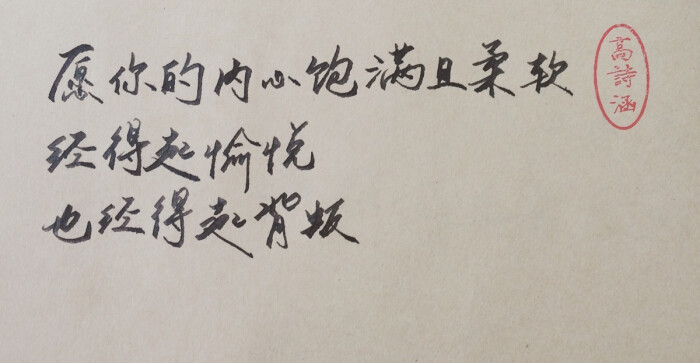 愿你的内心饱满且柔软
经得起愉悦
也经得起背叛
高詩涵